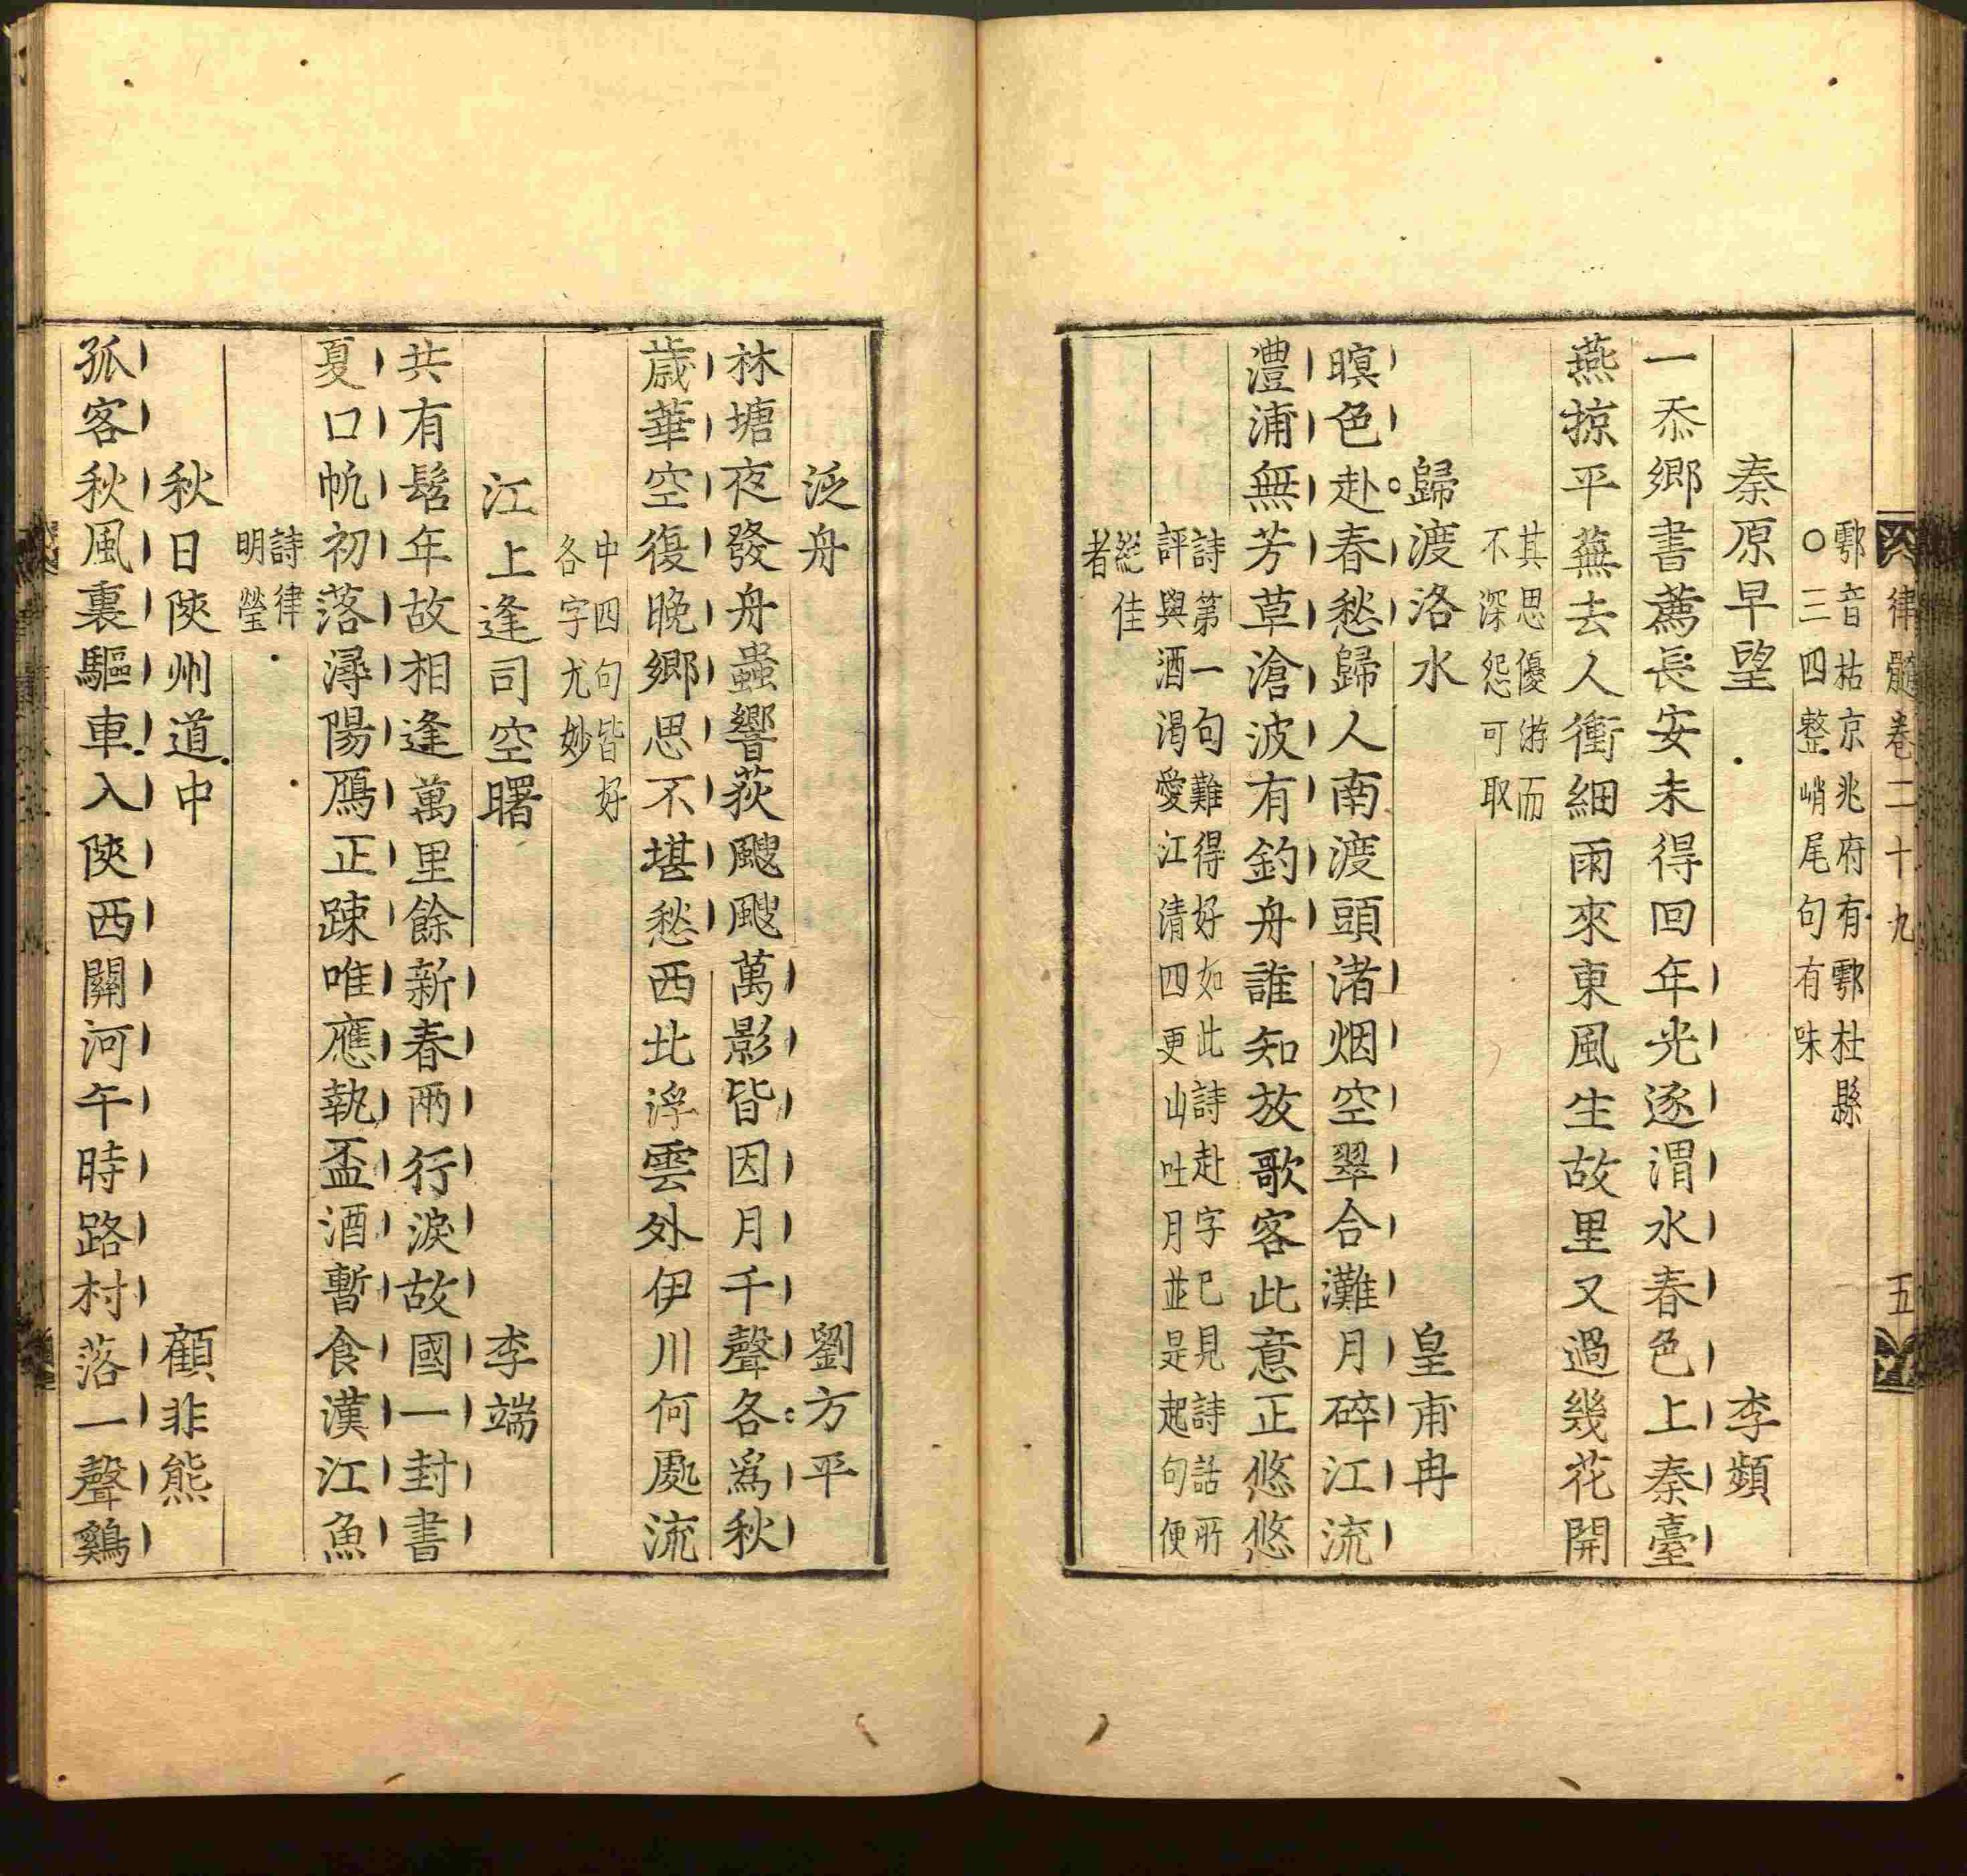 律髓卷二十九 五
鄠音祜京兆府有鄠杜縣
○三四整峭尾句有味
秦原早望 李頻
一忝鄉書薦長安未得回年光逐渭水春色上秦臺
燕掠平蕪去人衝細雨來東風生故里又過幾花開
其思優游而
不深怨可取
歸渡洛水 皇甫冉
暝色赴春愁歸人南渡頭渚烟空翠合灘月碎江流
澧浦無芳草滄波有釣舟誰知放歌客此意正悠悠
詩第一句難得好如此詩赴字已見詩話所
評與酒渴愛江清四更山吐月並是起句便
絕佳
者
泛舟 劉方平
林塘夜發舟蟲響荻颼颼萬影皆因月千聲各為秋
歲華空復晚鄉思不堪愁西北浮雲外伊川何處流
中四句皆好
各字尤妙
江上逢司空曙 李端
共有髫年故相逢萬里餘新春兩行淚故國一封書
夏口帆初落潯陽鴈正踈唯應執盃酒暫食漢江魚
詩律
明瑩
秋日陝州道中 顧非熊
孤客秋風裏驅車入陝西關河午時路村落一聲鷄